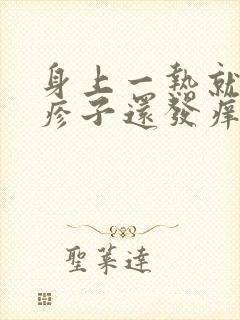 身上一熱就
疹子還發痒
聖萊達